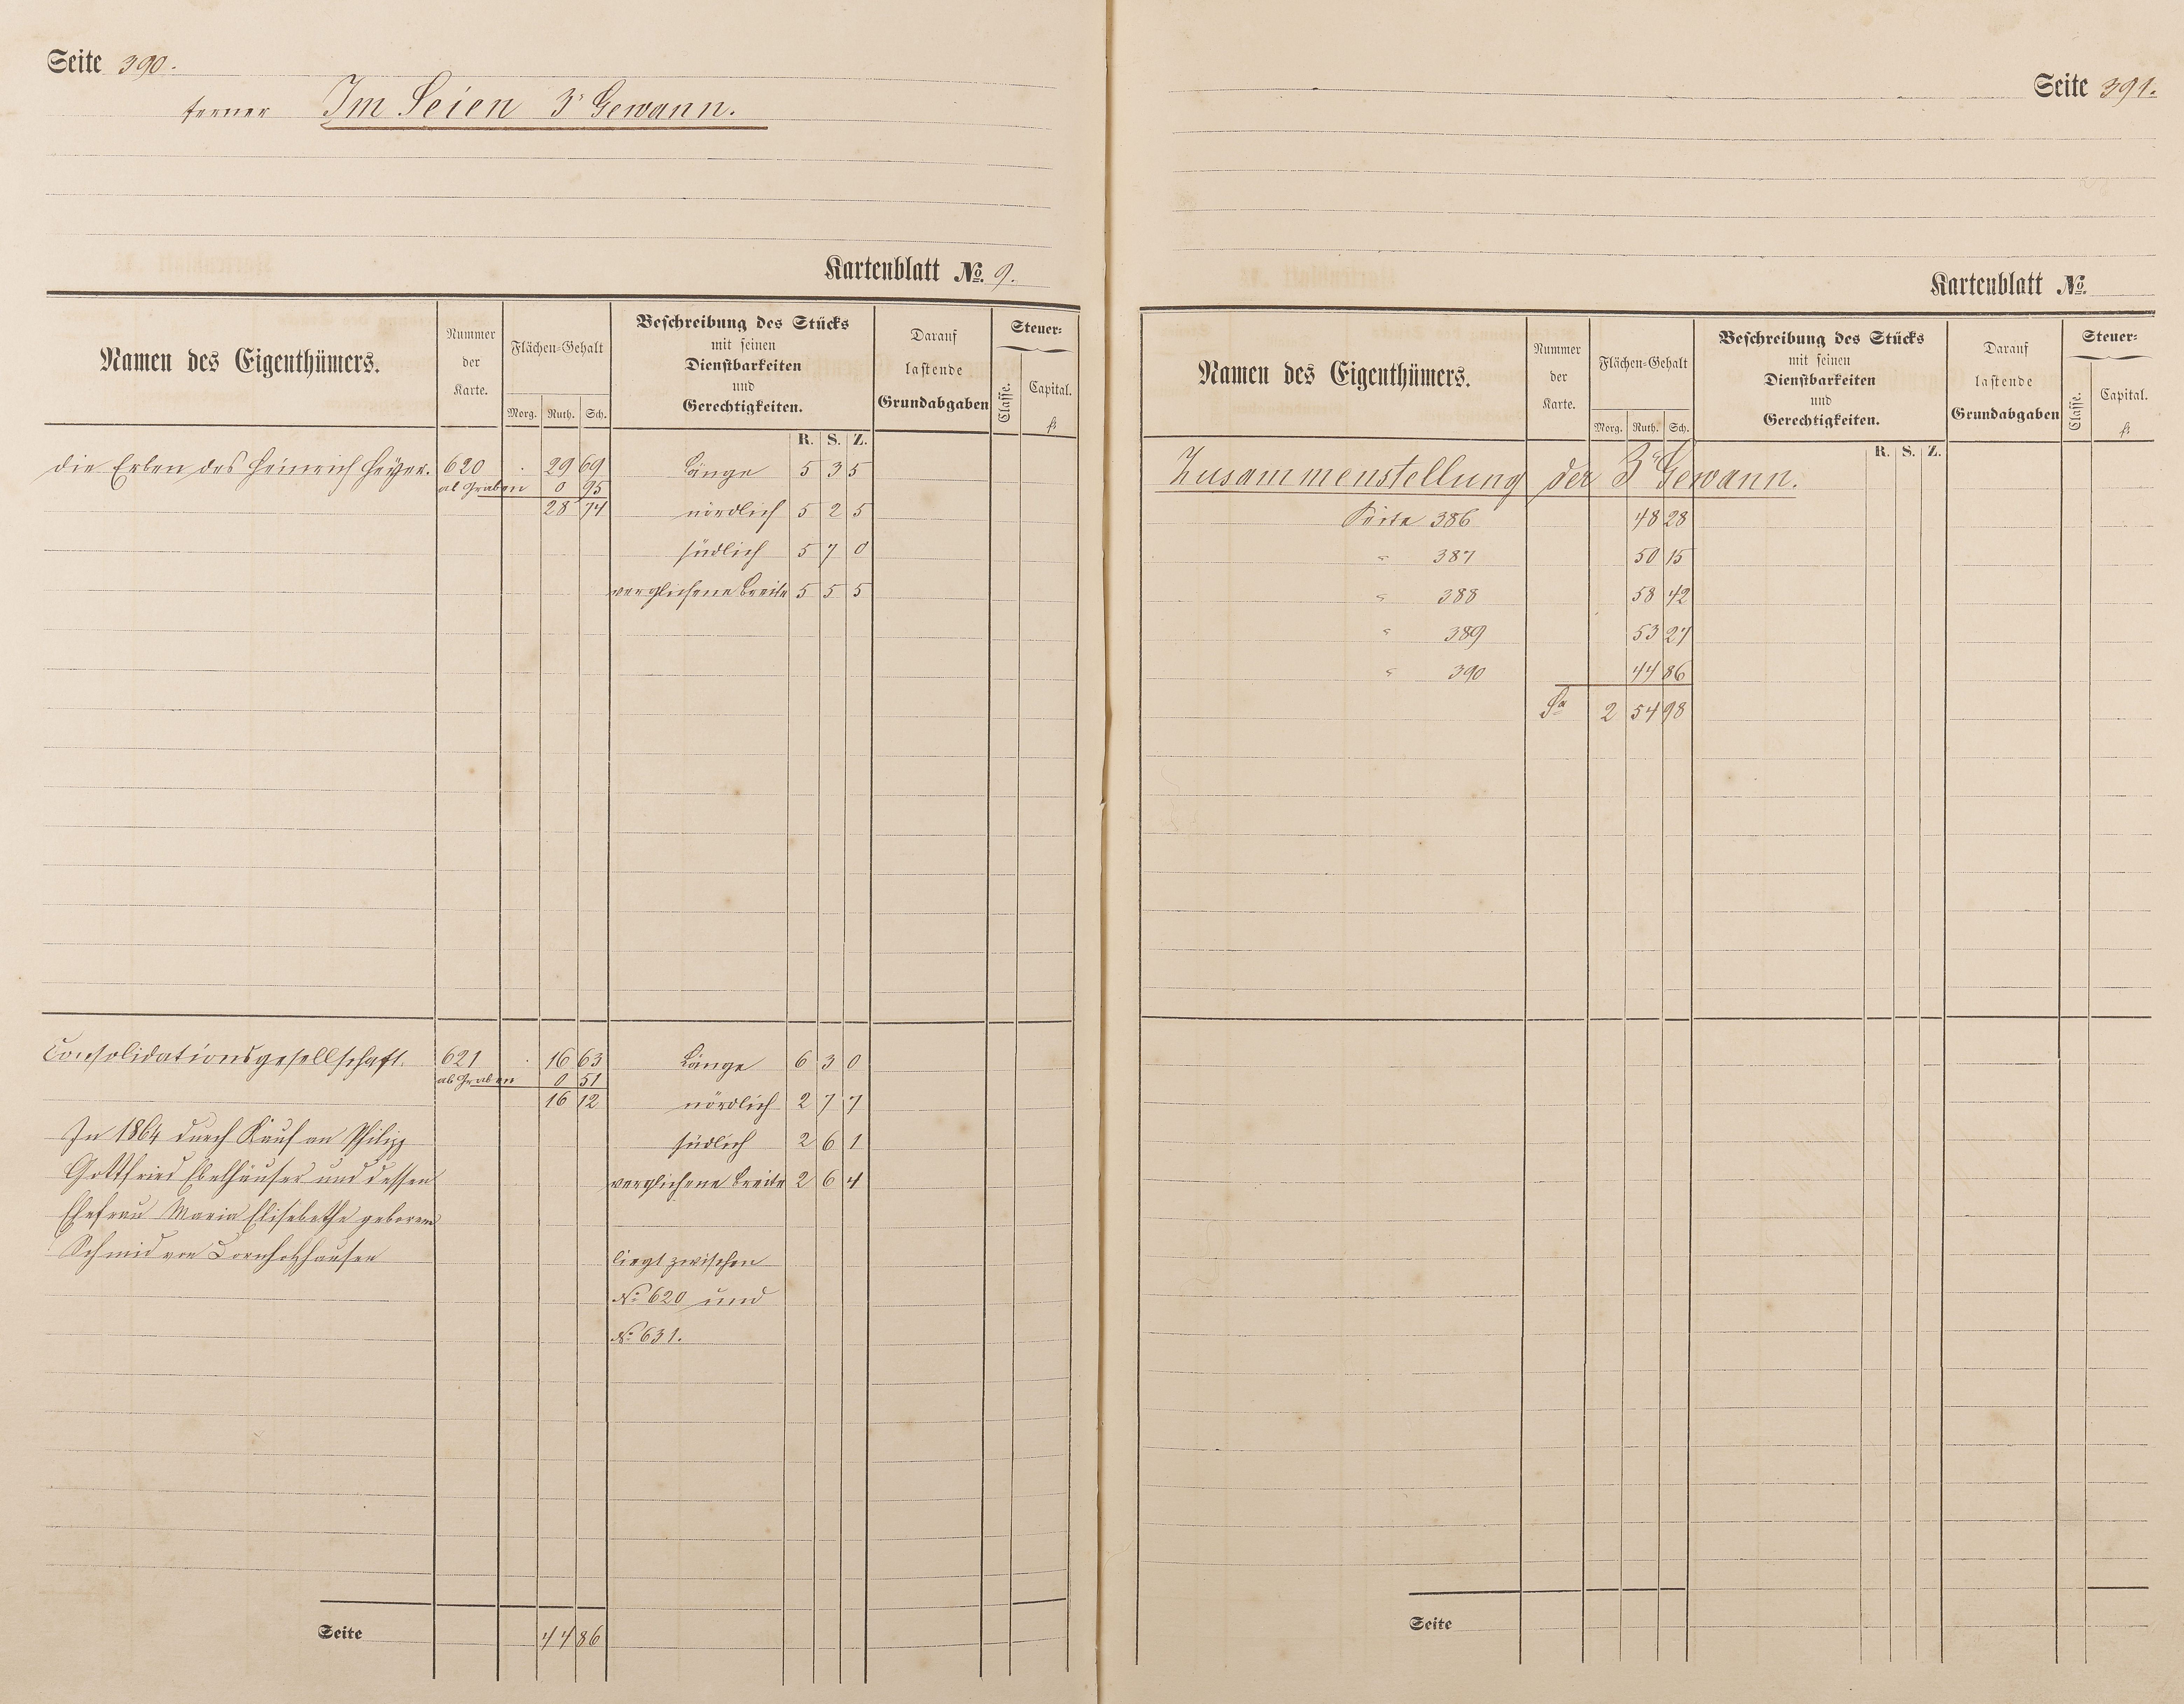 Seite 390.
ferner Im Seien 3r Gewann.
Kartenblatt No. 9.
Namen des Eigenthümers.
Nummer der Karte.
Flächen-Gehalt
Morg. Ruth. Sch.
Beschreibung des Stücks
mit seinen
Dienstbarkeiten
und
Gerechtigkeiten.
Darauf
lastende
Grundabgaben
Steuer-
Classe.
Capital.
fl.
R. S. Z.
die Erben des Heinrich Heyer. 620 . 29 69 Länge 5 3 5
ab Graben 0 95
28 74 nördlich 5 2 5
südlich 5 7 0
verglichene Breite 5 5 5
Consolidationsgesellschaft. 621 . 16 63 Länge 6 3 0
ab Graben 0 51
16 12 nördlich 2 7 7
In 1864 durch Kauf an Philipp
südlich 2 6 1
Gottfried Ebelhäuser und dessen
verglichene Breite 2 6 4
Ehefrau Maria Elisebethe geborene
Schmid von Dornholzhausen
liegt zwischen
No 620 und
No 631.
Seite 44 86
Seite 391.
Kartenblatt No.
Namen des Eigenthümers.
Nummer der Karte.
Flächen-Gehalt
Morg. Ruth. Sch.
Beschreibung des Stücks
mit seinen
Dienstbarkeiten
und
Gerechtigkeiten.
Darauf
lastende
Grundabgaben
Steuer-
Classe.
Capital.
fl.
R. S. Z.
Zusammenstellung der 3r Gewann.
Seite 386 48 28
" 387 50 15
" 388 58 42
" 389 53 27
" 390 44 86
Sa 2 54 98
Seite